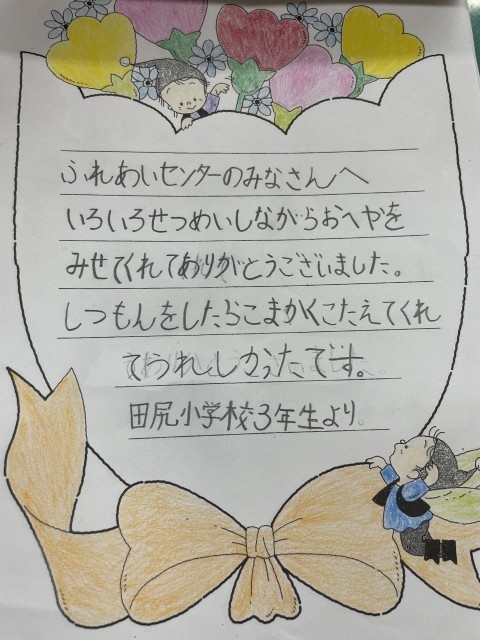 ふれあいセンターのみなさんへ
いろいろせつめいしながらおへやを
みせてくれてありがとうございました。
しつもんをしたらこまかくこたえてくれ
てうれしかったです。
田尻小学校3年生より。